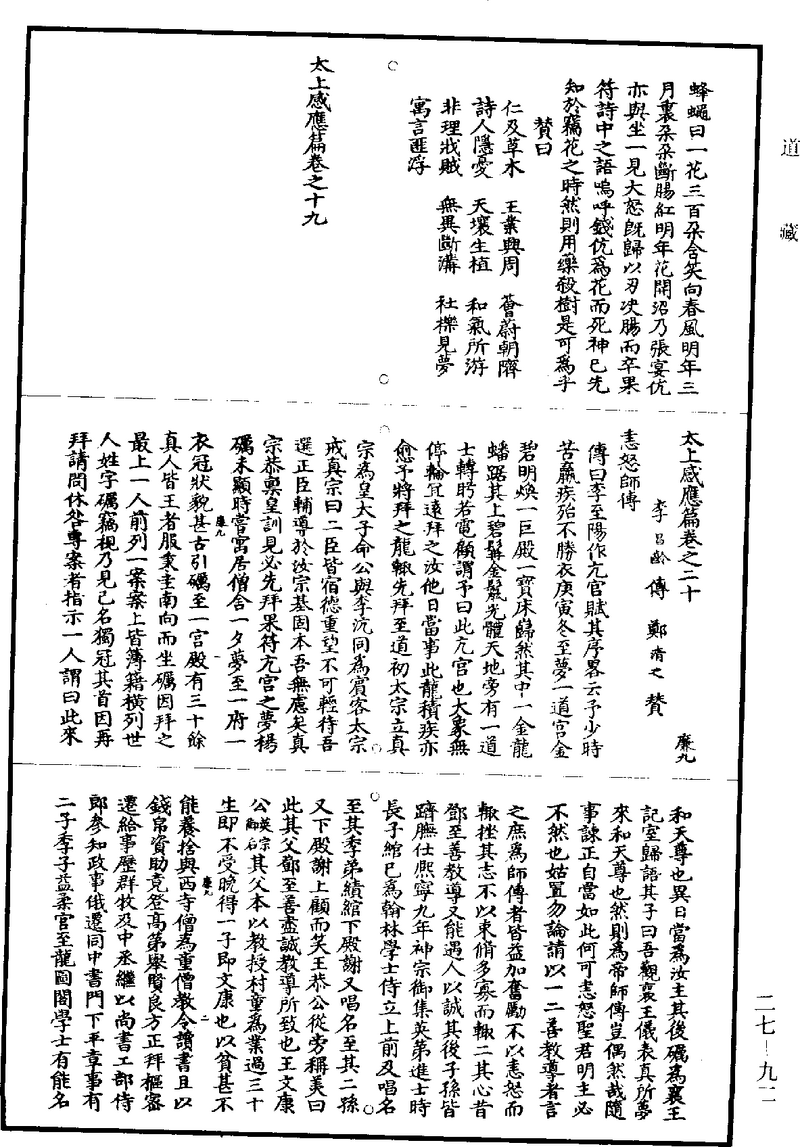 道藏
蜂蝿曰一花三百朶含笑向春風明年三
月裏朶朶斷腸紅明年花開沼乃張宴伉
亦與坐一見大怒既歸以刃決腸而卒果
符詩中之語嗚呼錢伉爲花而死神已先
知於竊花之時然則用藥殺樹是可爲乎
賛曰
仁及草木　王業興周　薈蔚朝隮
詩人隱憂　天壤生植　和氣所游
非理戕賊　無異斷溝　社櫟見夢
寓言匪浮
太上感應篇卷之十九
太上感應篇卷之二十
廉九
李昌齡傳　鄭清之賛
恚怒師傳
傳曰李至陽作亢宮賦其序畧云予少時
苦羸疾殆不勝衣庚寅冬至夢一道宮金
碧明煥一巨殿一寶床巋然其中一金龍
蟠踞其上碧髯金鬣光體天地旁有一道
士轉眄若電顧謂予曰此亢宮也大象無
停輪冝遠拜之汝他日當事此龍積疾亦
愈予將拜之龍輒先拜至道初太宗立真
宗爲皇太子命公與李沆同爲賓客太宗
戒真宗曰二臣皆宿德重望不可輕待吾
選正臣輔導於汝宗基固本吾無慮矣真
宗恭稟皇訓見必先拜果符亢宮之夢楊
礪未顯時嘗寓居僧舍一夕夢至一府一
廉九
衣冠狀貌甚古引礪至一宮殿有三十餘
真人皆王者服秉圭南向而坐礪因拜之
最上一人前列一案案上皆簿籍橫列世
人姓字礪竊視乃見己名獨冠其首因再
拜請問休咎專案者指示一人謂曰此來
和天尊也異日當爲汝主其後礪爲襄王
記室歸語其子曰吾觀襄王儀表真所夢
來和天尊也然則爲帝師傅豈偶然哉隨
事諫正自當如此何可恚怒聖君明主必
不然也姑置勿論請以一二善教導者言
之庶爲師傅者皆益加奮勵不以恚怒而
輒挫其志不以束脩多寡而輒二其心昔
鄧至善教導又能遇人以誠其後子孫皆
躋膴仕熙寧九年神宗御集英第進士時
長子綰已爲翰林學士侍立上前及唱名
至其季弟績綰下殿謝又唱名至其二孫
又下殿謝上顧而笑王恭公從旁稱美曰
此其父鄧至善盡誠教導所致也王文康
公英宗御名其父本以教授村童爲業過三十
生即不受晚得一子即文康也以貧甚不
廉九　二
能養捨與西寺僧爲童僧教令讀書且以
錢帛資助竟登高第舉賢良方正拜樞密
遷給事歷群牧及中丞繼以尚書工部侍
郎參知政事俄還同中書門下平章事有
二子季子益柔官至龍圖閣學士有能名
二七－九二